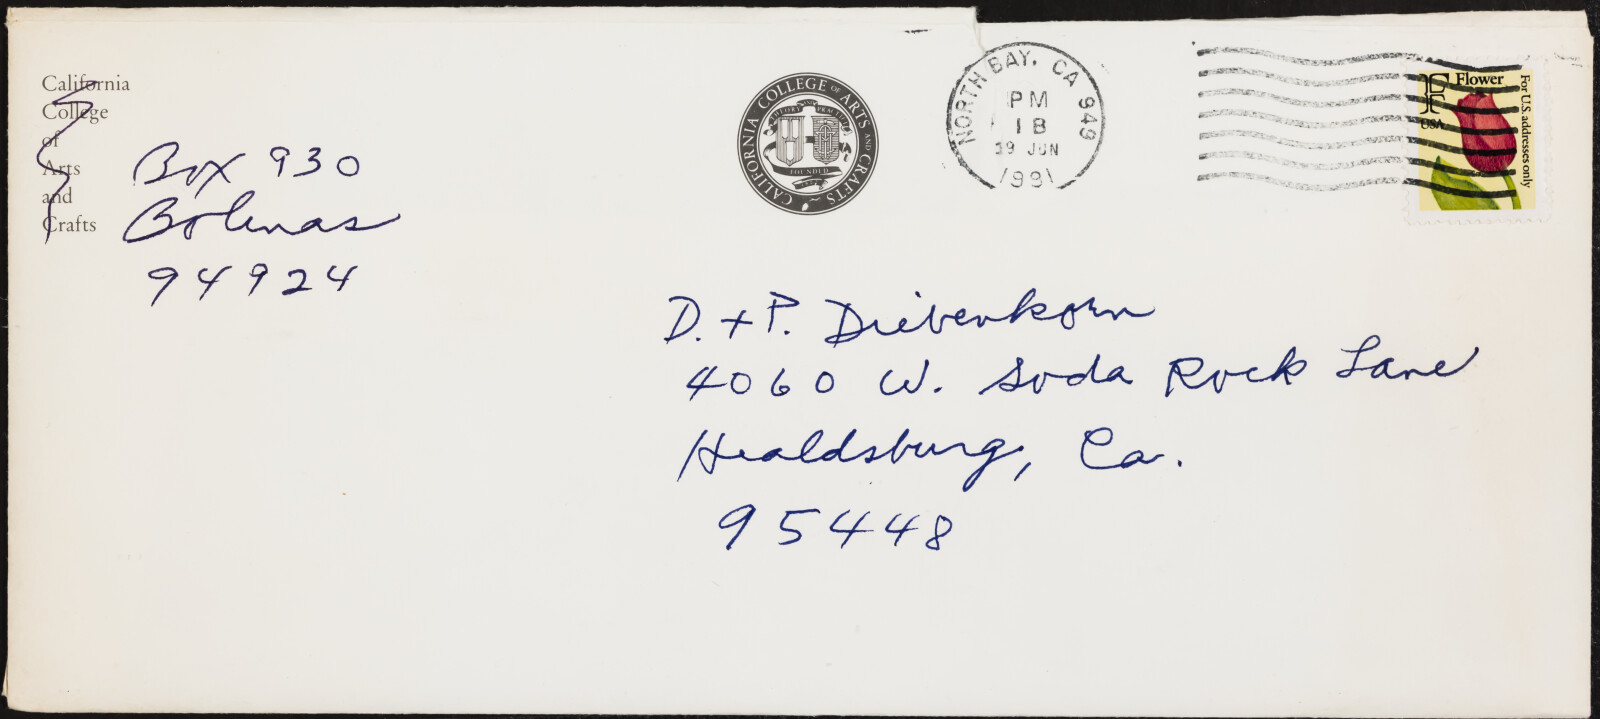 California
College
of
Arts
and
Crafts
Box 930
Bolinas
94924
CALIFORNIA COLLEGE OF ARTS AND CRAFTS
THEORY AND PRACTICE
FOUNDED
NORTH BAY, CA 949
PM
18
JUN
1991
F Flower
USA
For U.S. addresses only
D. + P. Diebenkorn
4060 W. Soda Rock Lane
Healdsburg, Ca.
95448